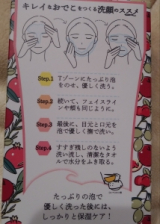 キレイなおでこをつくる洗顔のススメ
Step.1
Tゾーンにたっぷり泡
をのせ、優しく洗う。
Step.2
続いて、フェイスライ
ンや頬も同じように。
Step.3
最後に、目元と口元を
泡で優しく撫で洗い。
Step.4
すすぎ残しのないよう
洗い流し、清潔なタオ
ルで水分をふき取る。
たっぷりの泡で
優しく洗った後には、
しっかりと保湿ケア!